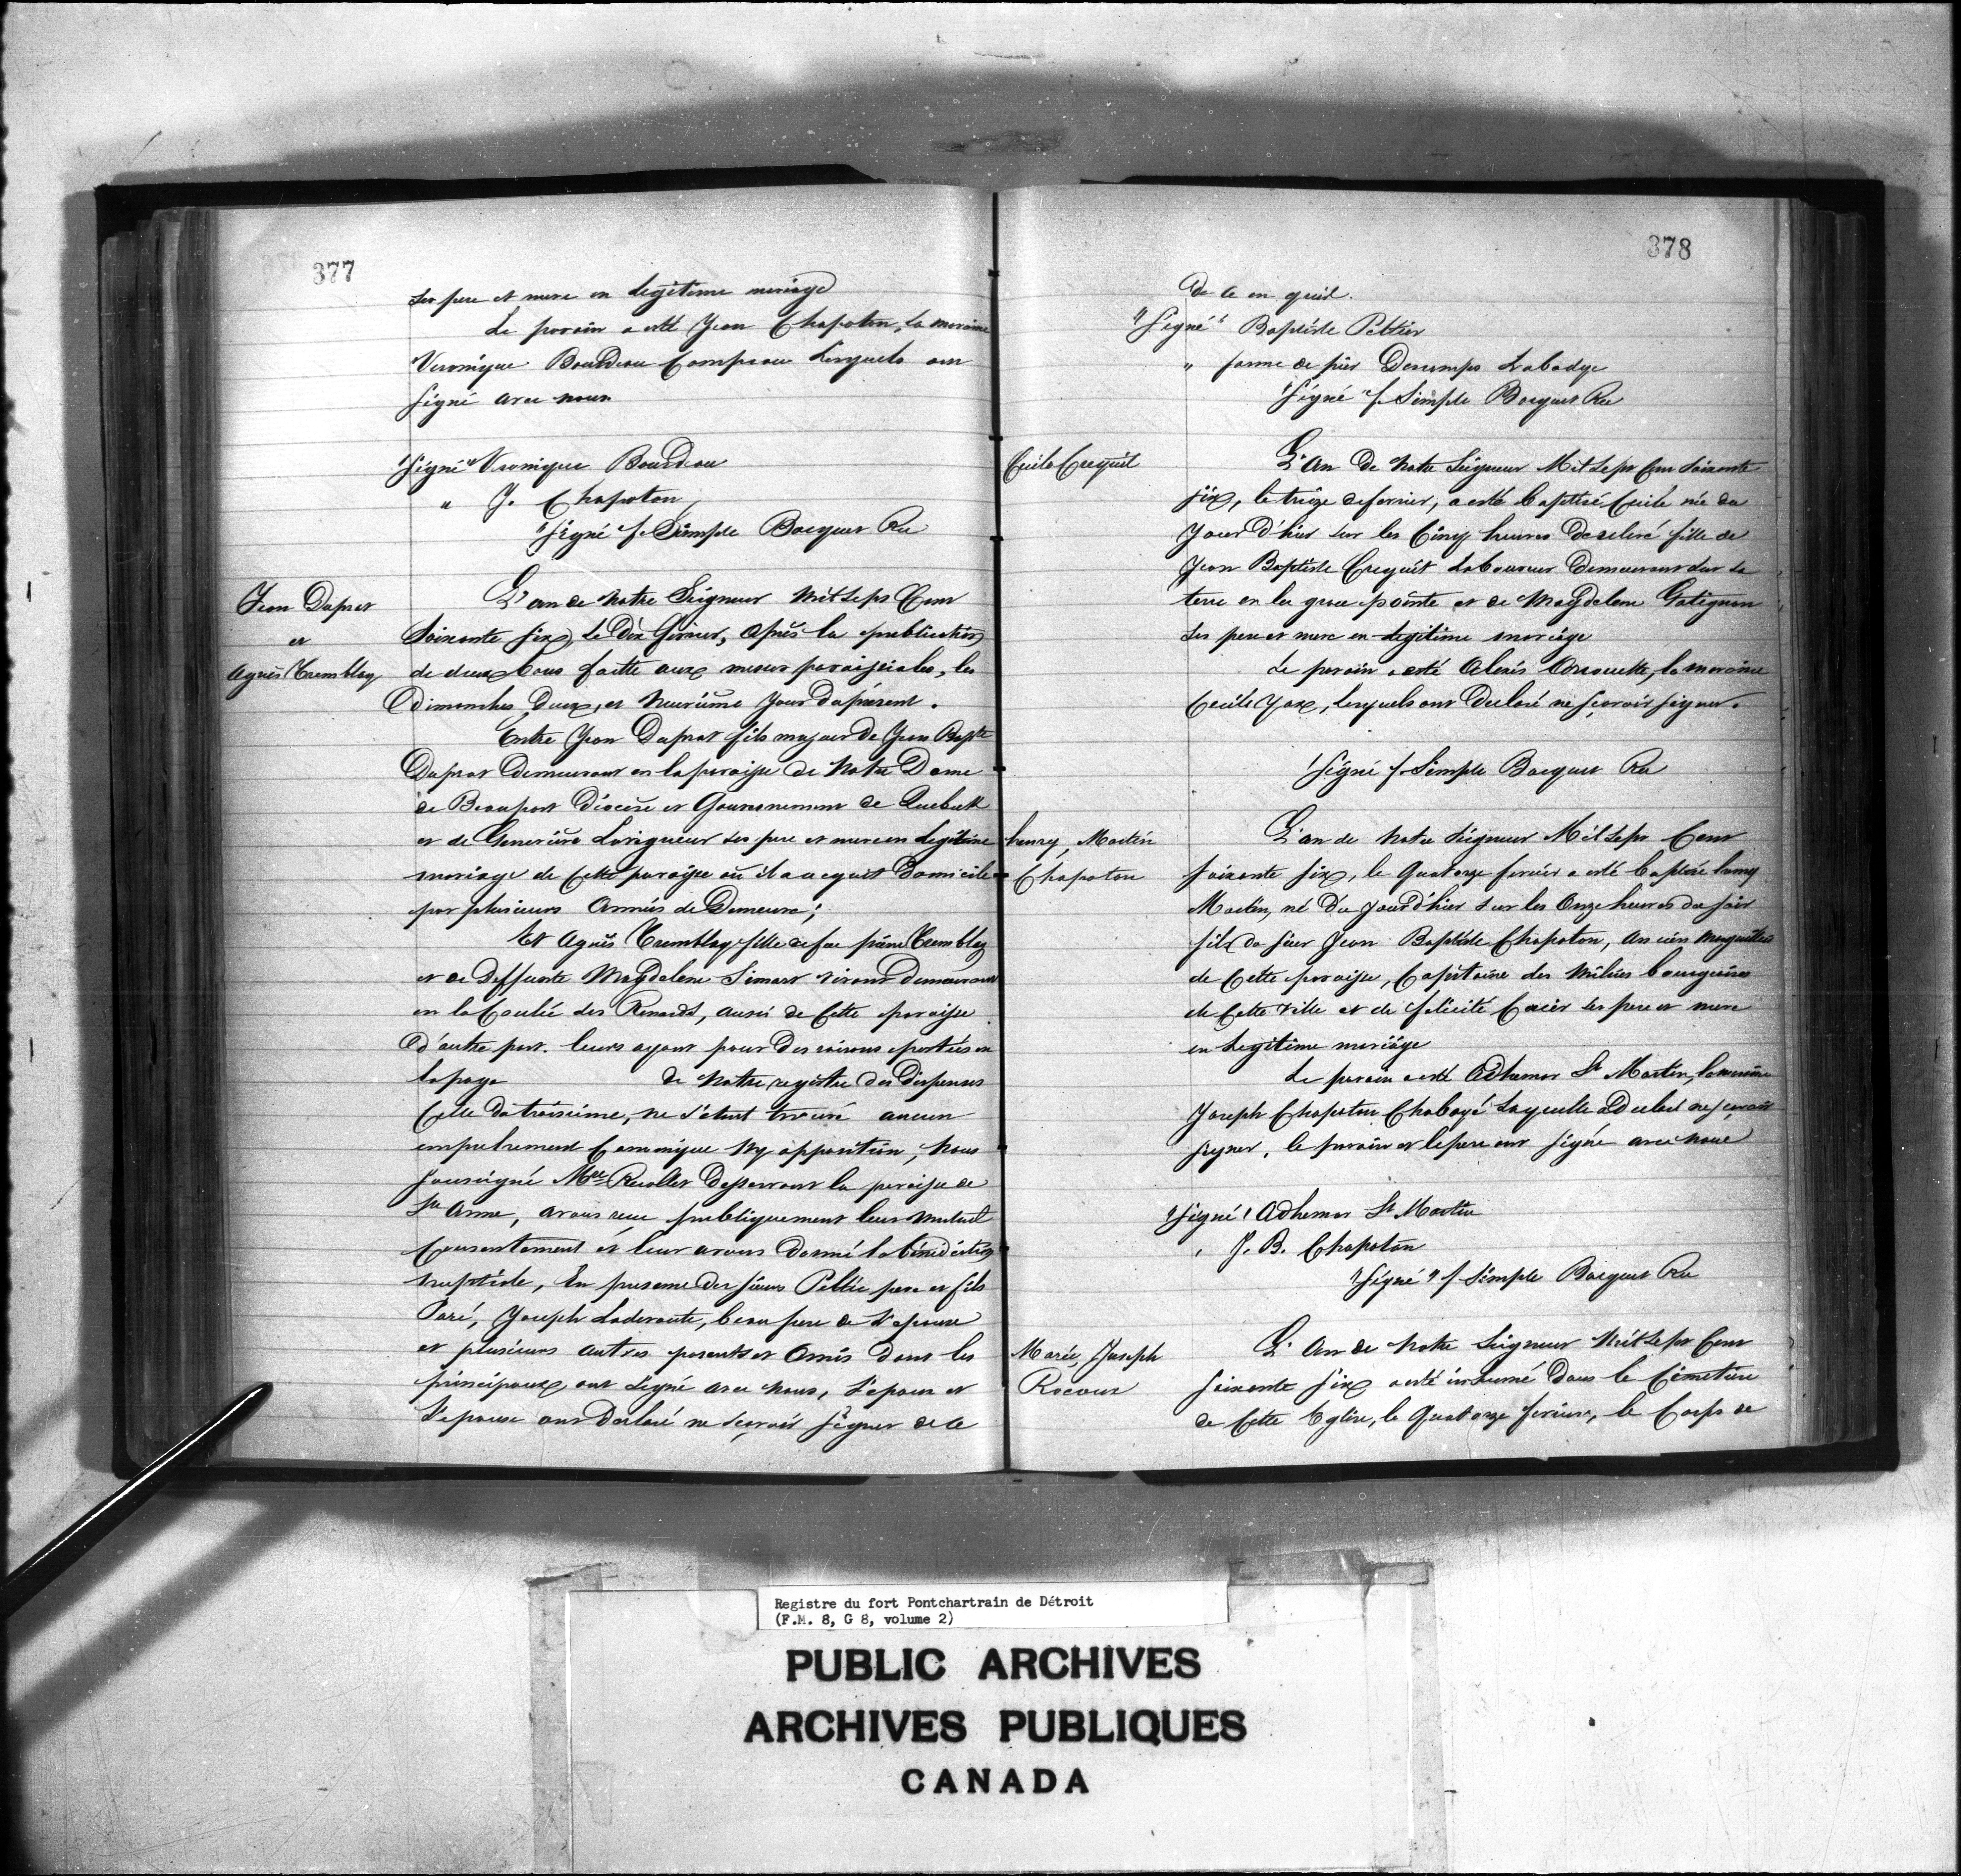 377
ses pere et mere en legitime mariage
Le parain a esté Jean Chapoton, la maraine
Veronique Bourdeau Campeau lesquels on
signé avec nous
"Signé" Veronique Bourdeau
" J. Chapoton
"Signé f. Simple Bocquet Rec
Jean Duprat
et
Agnès Tremblay
L'an de notre Seigneur Mil Sept Cent
Soixante Six, le Dix fevrier, après la publication
de deux bans faitte aux messes paroissiales, les
Dimanches Deux, et Neuvième Jour du présent.
Entre Jean Duprat fils majeur de Jean Bapte
Duprat Demeurant en la paroisse de Notre Dame
de Beauport Diocèse et Gouvernement de Quebeck
et de Genevieve Lavigueur ses pere et mere en legitime
mariage de Cette paroisse où il a acquit Domicile
par plusieurs Années de Demeure;
Et Agnès Tremblay fille de feu piere Tremblay
et de Deffunte Magdelene Simart vivant Demeurant
en la Coulée des Renards, aussi de Cette paroisse
D'autre part. leurs ayant pour des raisons portées en
la page de Notre registre des Dispenses
Celle du troisième, ne s'étant trouvé aucun
empechement Canonique Ny opposition, Nous
Soussigné Mre Recollet Desservant la paroisse de
Ste Anne, avons reçu publiquement leur mutuel
Consentement et leur avons donné la bénédiction
nuptiale, En presence des sieurs Peltié pere et fils
Paré, Joseph Laderoute, beau pere de l'epouse
et plusieurs autres parents et Amis dont les
principaux ont signé avec nous, l'epoux et
L'epouse ont Declaré ne sçavoir signer de ce
378
de ce en quid.
"Signé" Baptiste Peltier
" famme de pier Decomps Labadye
"Signé" f. Simple Bocquet Rec
Cecile Crequit
L'An De Notre Seigneur Mil Sept Cent Soixante
Six, le treize de fevrier, a esté baptisé Cecile née du
Jour D'hier sur les Cinq heures de relevé fille de
Jean Baptiste Crequit Laboureur Demeurant sur sa
terre en la grace pointe et de Magdelene Gatignon
ses pere et mere en legitime mariage
Le parain a esté Alexis, la maraine
Cecile Yax, lesquels ont Declaré ne sçavoir signer.
"Signé f. Simple Bocquet Rec
henry, Martin
Chapoton
L'an de Notre Seigneur Mil Sept Cent
Soixante Six, le Quatorze fevrier a esté baptisé henry
Martin, né du jour d'hier sur les Onze heures du soir
fils du sieur Jean Baptiste Chapoton, Ancien Marguillier
de Cette paroisse, Capitaine des milices bourgeoises
de Cette Ville et de felicité Cecire ses pere et mere
en legitime mariage
Le parain a esté Adhemar St Martin, la maraine
Joseph Chapoton Chaboyé laquelle a Declaré ne sçavoir
signer, le parain et le pere ont signé avec nous
"Signé" Adhemar St Martin
" J. B. Chapoton
"Signé" f. Simple Bocquet Rec
Marie, Joseph
Rocour
L'An de Notre Seigneur Mil Sept Cent
Soixante Six a esté inhumé Dans le Cimetiere
de Cette Eglise, le Quatorze fevrier, le Corps de
Registre du fort Pontchartrain de Détroit
(F.M. 8, G 8, volume 2)
PUBLIC ARCHIVES
ARCHIVES PUBLIQUES
CANADA